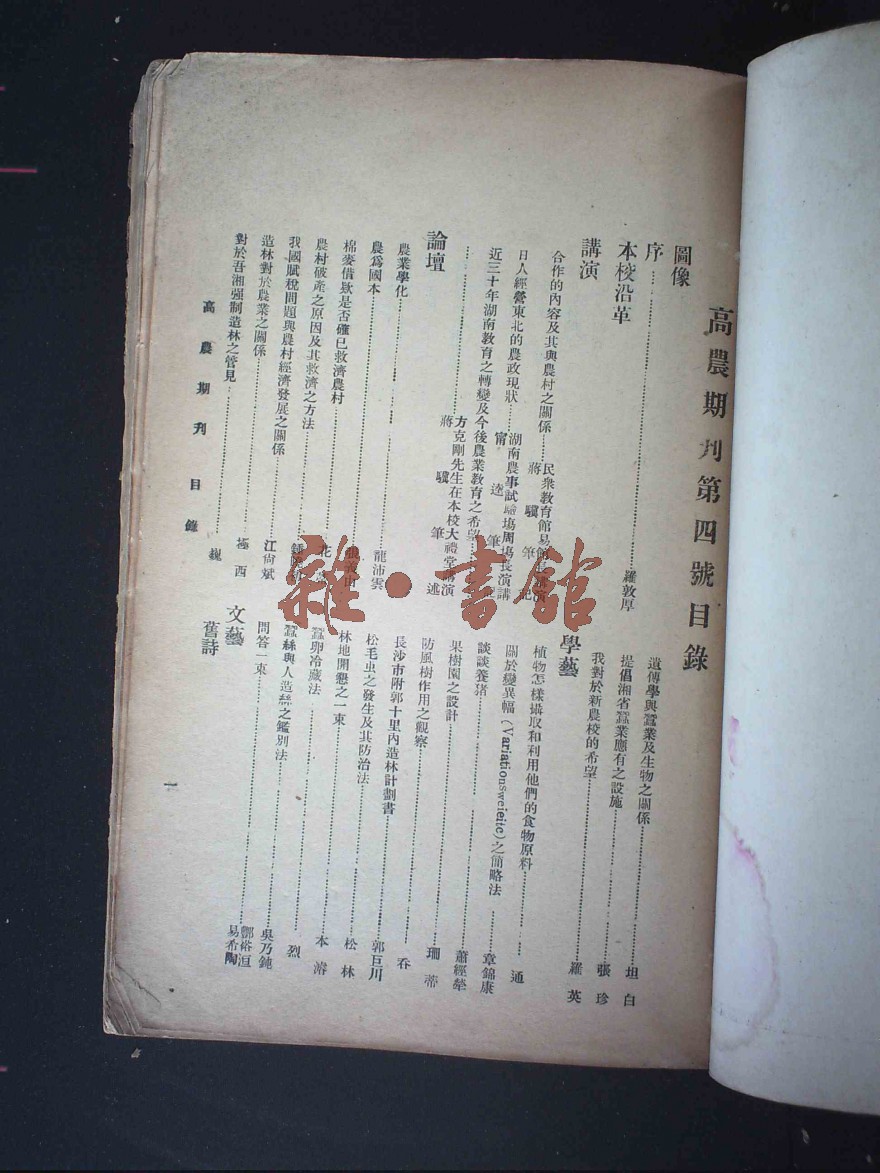 高農期刊第四號目錄
圖像
序……羅敦厚
本校沿革
講演
合作的內容及其與農村之關係……民衆教育館易館長講演
蔣驥筆記
日人經營東北的農政現狀……湖南農事試驗場周場長演講
甯逵筆記
近三十年湖南教育之轉變及今後農業教育之希望……
……方克剛先生在本校大禮堂講演
蔣驥筆述
論壇
農業學化……
農爲國本……龍沛雲
棉麥借欵是否確已救濟農村……
農村破產之原因及其救濟之方法……
我國賦稅問題與農村經濟發展之關係……
造林對於農業之關係……江尙斌
對於吾湘强制造林之管見……極西
巍
遺傳學與蠶業及生物之關係……坦白
提倡湘省蠶業應有之設施……張珍
我對於新農校的希望……羅英
學藝
植物怎樣攝取和利用他們的食物原料……通
關於變異幅（Variationsweieite）之簡略法
談談養猪……章錦康
果樹園之設計……蕭經犖
防風樹作用之觀察……珊蒂
長沙市附郭十里內造林計劃書……吞
松毛虫之發生及其防治法……郭巨川
林地開懇之一束……松林
蠶卵冷藏法……本濬
蠶絲與人造絲之鑑別法……烈
問答一束……吳乃鈍
文藝
舊詩……鄷裕洹
易希陶
高農期刊 目錄
一
雜·書館